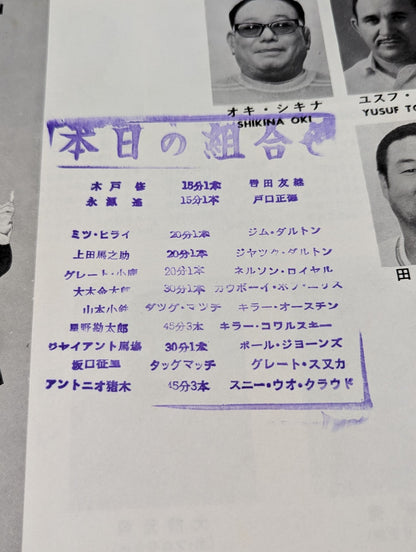 オキ・シキナ
SHIKINA OKI
ユスフ・
YUSUF TO
田
本日の組合せ
木戸修 15分1本 轡田友継
永源遙 15分1本 戸口正徳
ミツ・ヒライ 20分1本 ジム・ダルトン
上田馬之助 20分1本 ジヤツク・ダルトン
グレート・小鹿 20分1本 ネルソン・ロイヤル
大木金太郎 30分1本 カウボーイ・ボブ・エリス
山本小鉄 タツグ・マツチ キラー・オースチン
星野勘太郎 45分3本 キラー・コワルスキー
ジヤイアント馬場 30分1本 ポール・ジョーンズ
坂口征二 タッグマッチ グレート・スヌカ
アントニオ猪木 45分3本 スニー・ウオ・クラウド